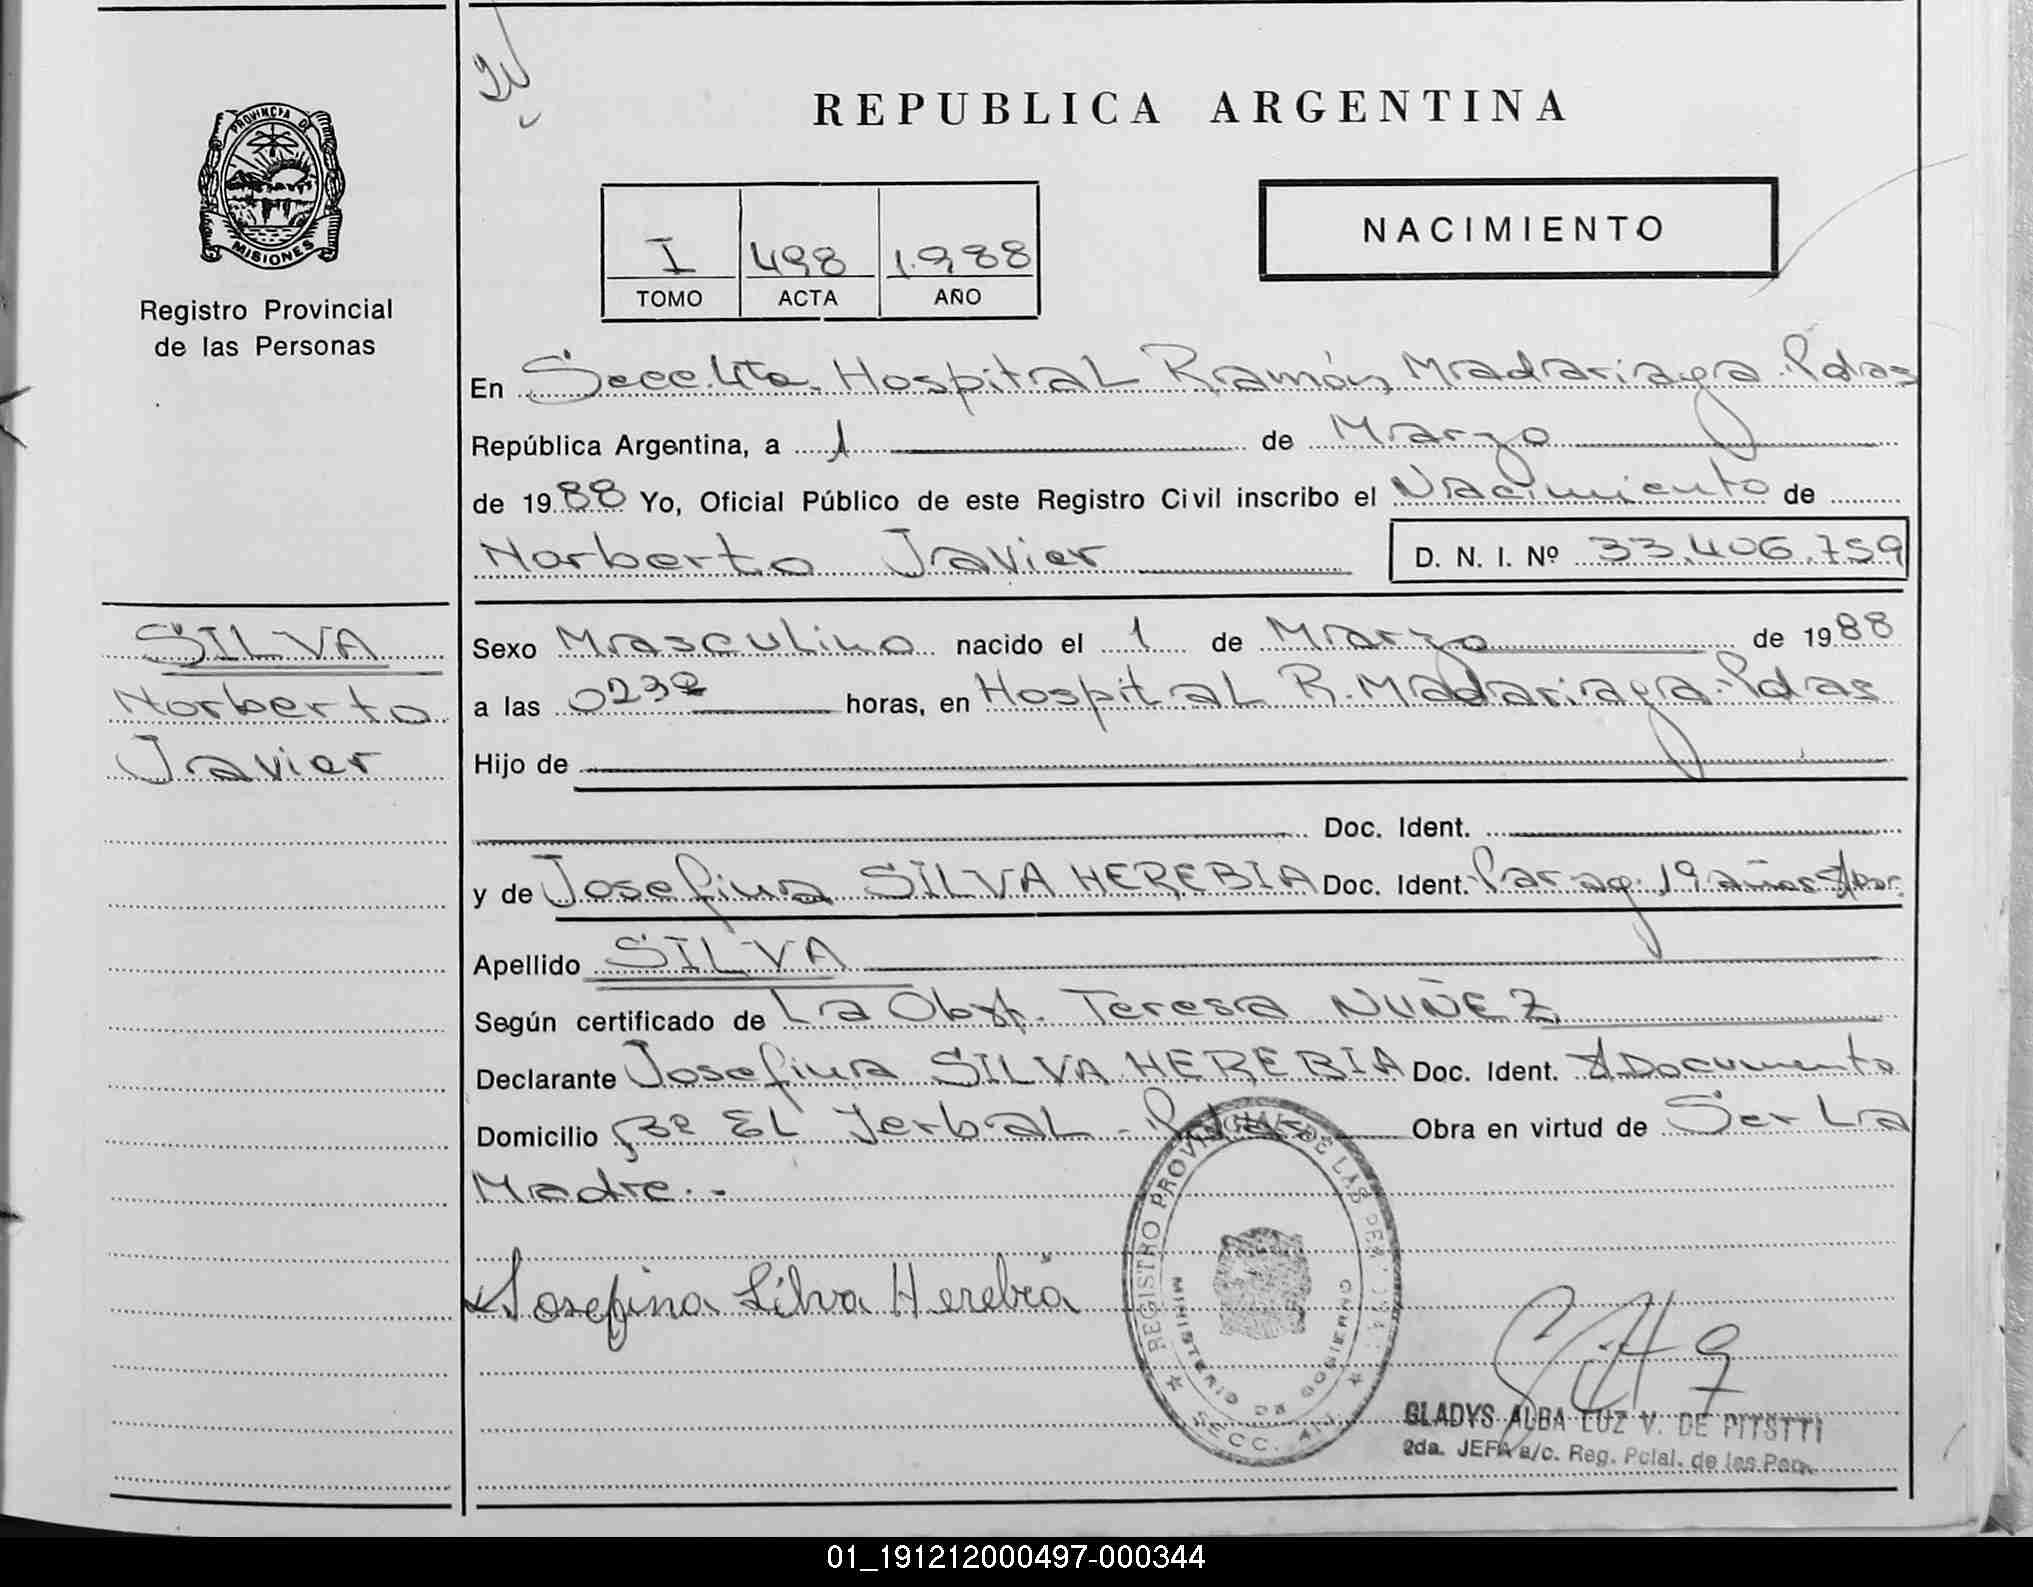 REPUBLICA ARGENTINA
PROVINCIA DE
MISIONES
Registro Provincial
de las Personas
I 498 1.988
TOMO ACTA AÑO
NACIMIENTO
En Secc. 4ta. Hospital Ramón Madariaga. Pdas
República Argentina, a 1 de Marzo
de 1988 Yo, Oficial Público de este Registro Civil inscribo el Nacimiento de
Norberto Javier D. N. I. Nº 33.406.759
SILVA
Norberto
Javier
Sexo Masculino nacido el 1 de Marzo de 1988
a las 0232 horas, en Hospital R. Madariaga. Pdas
Hijo de
Doc. Ident.
y de Josefina SILVA HEREBIA Doc. Ident. Parag. 19 años
Apellido SILVA
Según certificado de La Obst. Teresa NUÑEZ
Declarante Josefina SILVA HEREBIA Doc. Ident. Documento
Domicilio Bº EL Yerbal - Pdas Obra en virtud de Ser La
Madre.-
Josefina Silva Herebia
REGISTRO PROVINCIAL DE LAS
MINISTERIO DE GOBIERNO
SECC.
GLADYS ALBA LUZ V. DE
2da. JEFA a/c. Reg. Pcial. de las Pers.
01_191212000497-000344